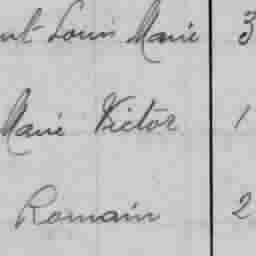 Louis Marie 3
Marie Victor 1
Romain 2